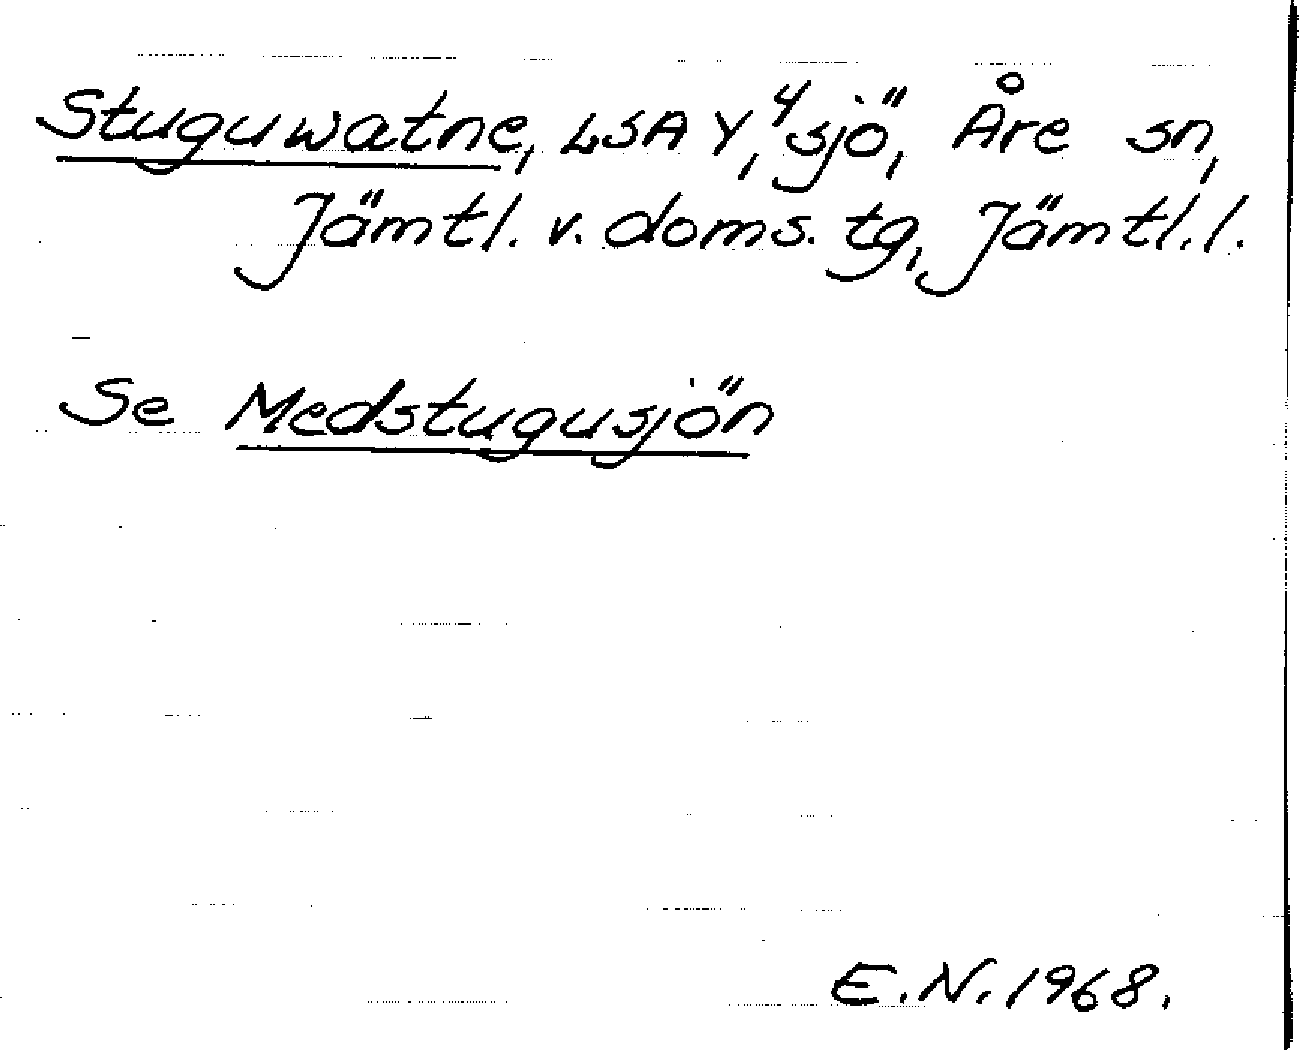 Stuguwatne, LSA Y, 4 sjö, Åre sn,
Jämtl. v. doms. tg, Jämtl. l.
Se Medstugusjön
E.N. 1968.